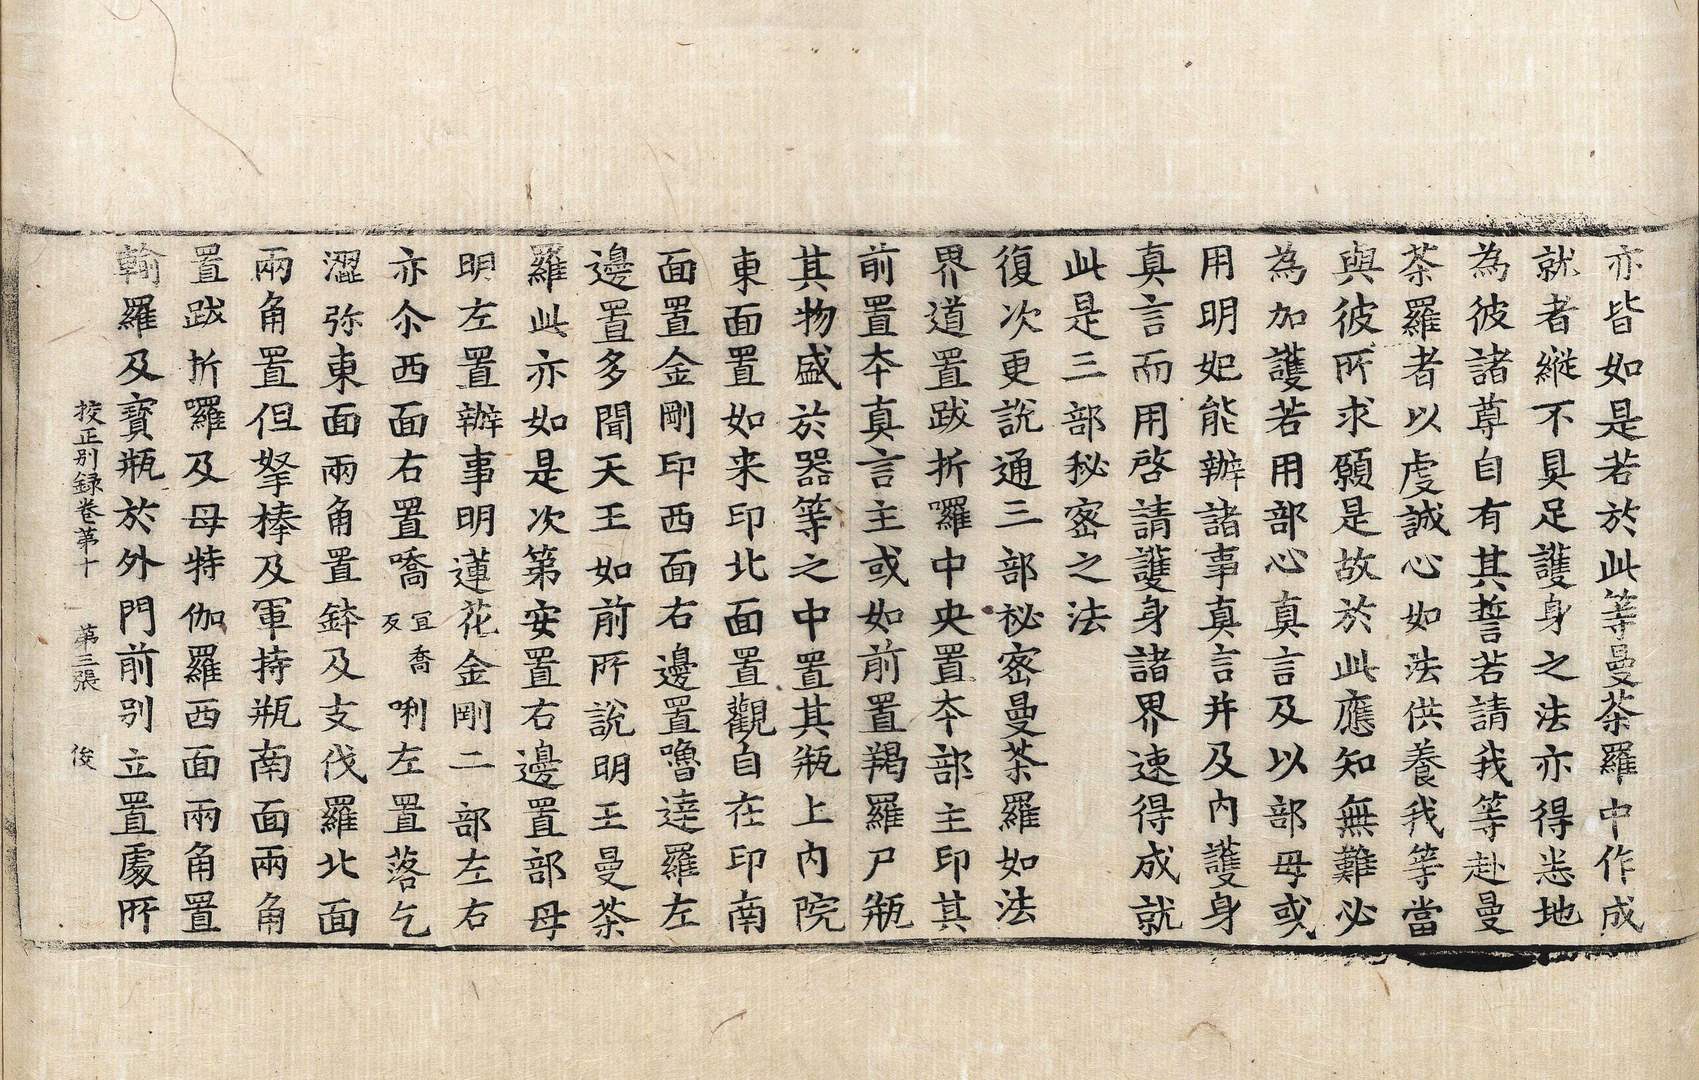 亦皆如是若於此等曼茶羅中作成
就者縱不具足護身之法亦得悉地
為彼諸尊自有其誓若請我等赴曼
茶羅者以虔誠心如法供養我等當
與彼所求願是故於此應知無難必
為加護若用部心真言及以部母或
用明妃能辦諸事真言并及內護身
真言而用啓請護身諸界速得成就
此是三部秘密之法
復次更說通三部秘密曼茶羅如法
界道置跋折囉中央置本部主印其
前置本真言主或如前置羯羅尸瓶
其物盛於器等之中置其瓶上內院
東面置如来印北面置觀自在印南
面置金剛印西面右邊置嚕達羅左
邊置多聞天王如前所說明王曼茶
羅此亦如是次第安置右邊置部母
明左置辦事明蓮花金剛二部左右
亦尒西面右置嚌宜喬反唎左置落乞
澀弥東面兩角置鉢及支伐羅北面
兩角置但拏棒及軍持瓶南面兩角
置跋折囉及母特伽羅西面兩角置
輸羅及寶瓶於外門前別立置處所
挍正別録卷第十 第三張 俊